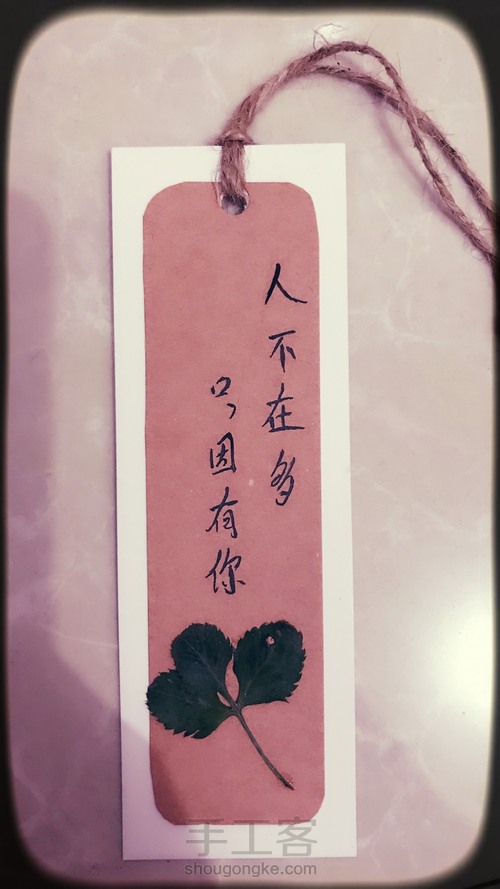 人不在多
只因有你
手工客
shougongke.com